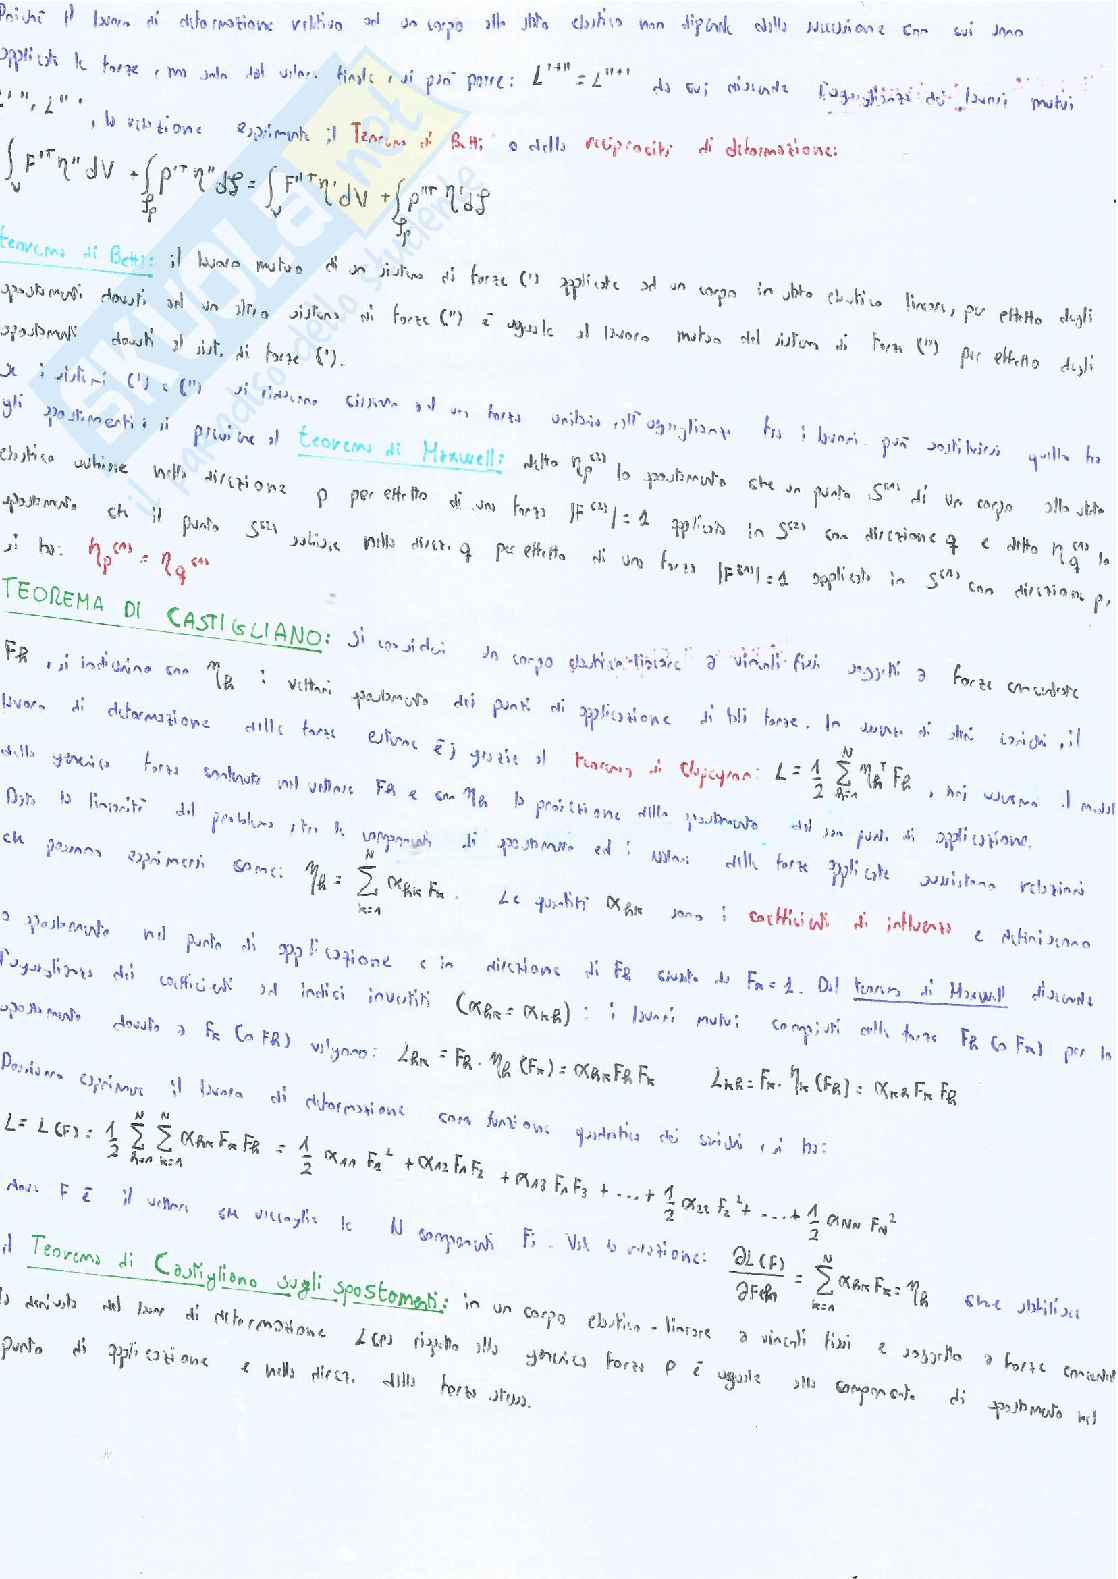 Poiché il lavoro di deformazione relativo ad un corpo allo stato elastico non dipende dalla successione con cui sono
applicate le forze, ma solo dal valore finale, si può porre: L'+'' = L''+' da cui discende l'uguaglianza dei lavori mutui
L' '', L'' ', la relazione esprimente il Teorema di Betti o della reciprocità di deformazione:
∫_V F'ᵀ η'' dV + ∫_ζp p'ᵀ η'' dζ = ∫_V F''ᵀ η' dV + ∫_ζp p''ᵀ η' dζ
teorema di Betti: il lavoro mutuo di un sistema di forze (') applicate ad un corpo in stato elastico lineare, per effetto degli
spostamenti dovuti ad un altro sistema di forze ('') è uguale al lavoro mutuo del sistema di forze ('') per effetto degli
spostamenti dovuti al sist. di forze (').
Se i sistemi (') e ('') si riducono ciascuno ad una forza unitaria, all'uguaglianza tra i lavori può sostituirsi quella tra
gli spostamenti e si perviene al teorema di Maxwell: detto ηp⁽²⁾ lo spostamento che un punto S⁽¹⁾ di un corpo allo stato
elastico subisce nella direzione p per effetto di una forza |F⁽²⁾| = 1 applicata in S⁽²⁾ con direzione q e detto ηq⁽¹⁾ lo
spostamento che il punto S⁽²⁾ subisce nella direz. q per effetto di una forza |F⁽¹⁾| = 1 applicata in S⁽¹⁾ con direzione p,
si ha: ηp⁽²⁾ = ηq⁽¹⁾
TEOREMA DI CASTIGLIANO: si consideri un corpo elastico-lineare a vincoli fissi soggetti a forze concentrate
Fh, si indichino con ηh i vettori spostamento dei punti di applicazione di tali forze. In assenza di altri carichi, il
lavoro di deformazione delle forze esterne è, grazie al teorema di Clapeyron: L = 1/2 Σ_{h=1}^{N} ηhᵀ Fh, il modulo
della generica forza contenuta nel vettore Fh e con ηh la proiezione dello spostamento del suo punto di applicazione.
Data la linearità del problema, tra le componenti di spostamento ed i valori delle forze applicate sussistono relazioni
che possono esprimersi come: ηh = Σ_{k=1}^{N} αhk Fk. Le quantità αhk sono i coefficienti di influenza e definiscono
lo spostamento nel punto di applicazione e in direzione di Fh causato da Fk = 1. Dal teorema di Maxwell discende
l'uguaglianza dei coefficienti ad indici invertiti (αhk = αkh): i lavori mutui compiuti dalla forza Fh (o Fk) per lo
spostamento dovuto a Fk (o Fh) valgono: Lhk = Fh · ηh (Fk) = αhk Fh Fk Lkh = Fk · ηk (Fh) = αkh Fk Fh
Possiamo esprimere il lavoro di deformazione come funzione quadratica dei carichi, si ha:
L = L(F) = 1/2 Σ_{h=1}^{N} Σ_{k=1}^{N} αhk Fk Fh = 1/2 α11 F1² + α12 F1 F2 + α13 F1 F3 + ... + 1/2 α22 F2² + ... + 1/2 αNN FN²
dove F è il vettore che raccoglie le N componenti Fi. Vale la relazione: ∂L(F)/∂Fh = Σ_{k=1}^{N} αhk Fk = ηh che stabilisce
il Teorema di Castigliano sugli spostamenti: in un corpo elastico-lineare a vincoli fissi e soggetto a forze concentrate
la derivata del lavoro di deformazione L(F) rispetto alla generica forza P è uguale alla componente di spostamento nel
punto di applicazione e nella direz. della forza stessa.
SKUOLA.net
il paradiso dello studente